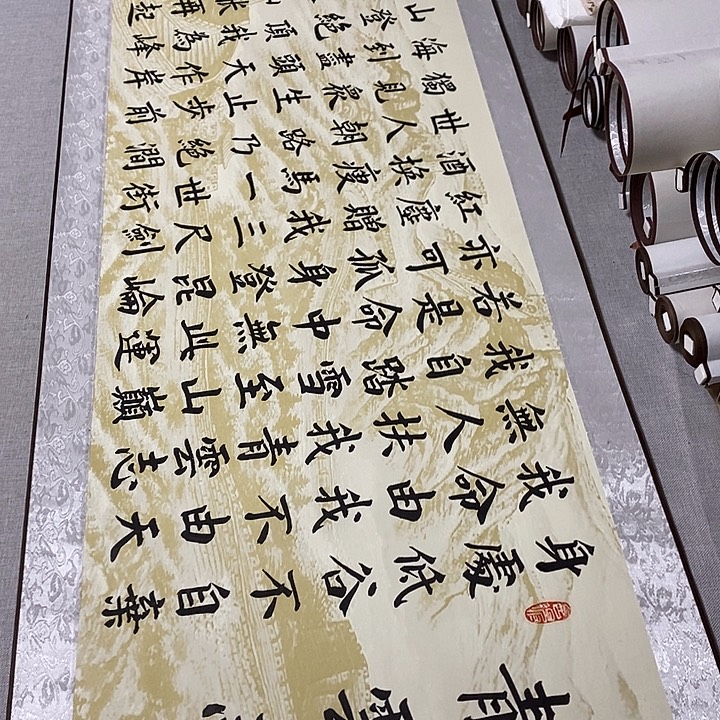 青雲
身處低谷不自棄
我命由我不由天
無人扶我青雲志
我自踏雪至山巔
若是命中無此運
亦可孤身登昆崙
紅塵贈我三尺劍
酒換瘦馬一世街
世人朝路乃絕澗
獨見眾生止步前
海到盡頭天作岸
山登絕頂我為峰
再起